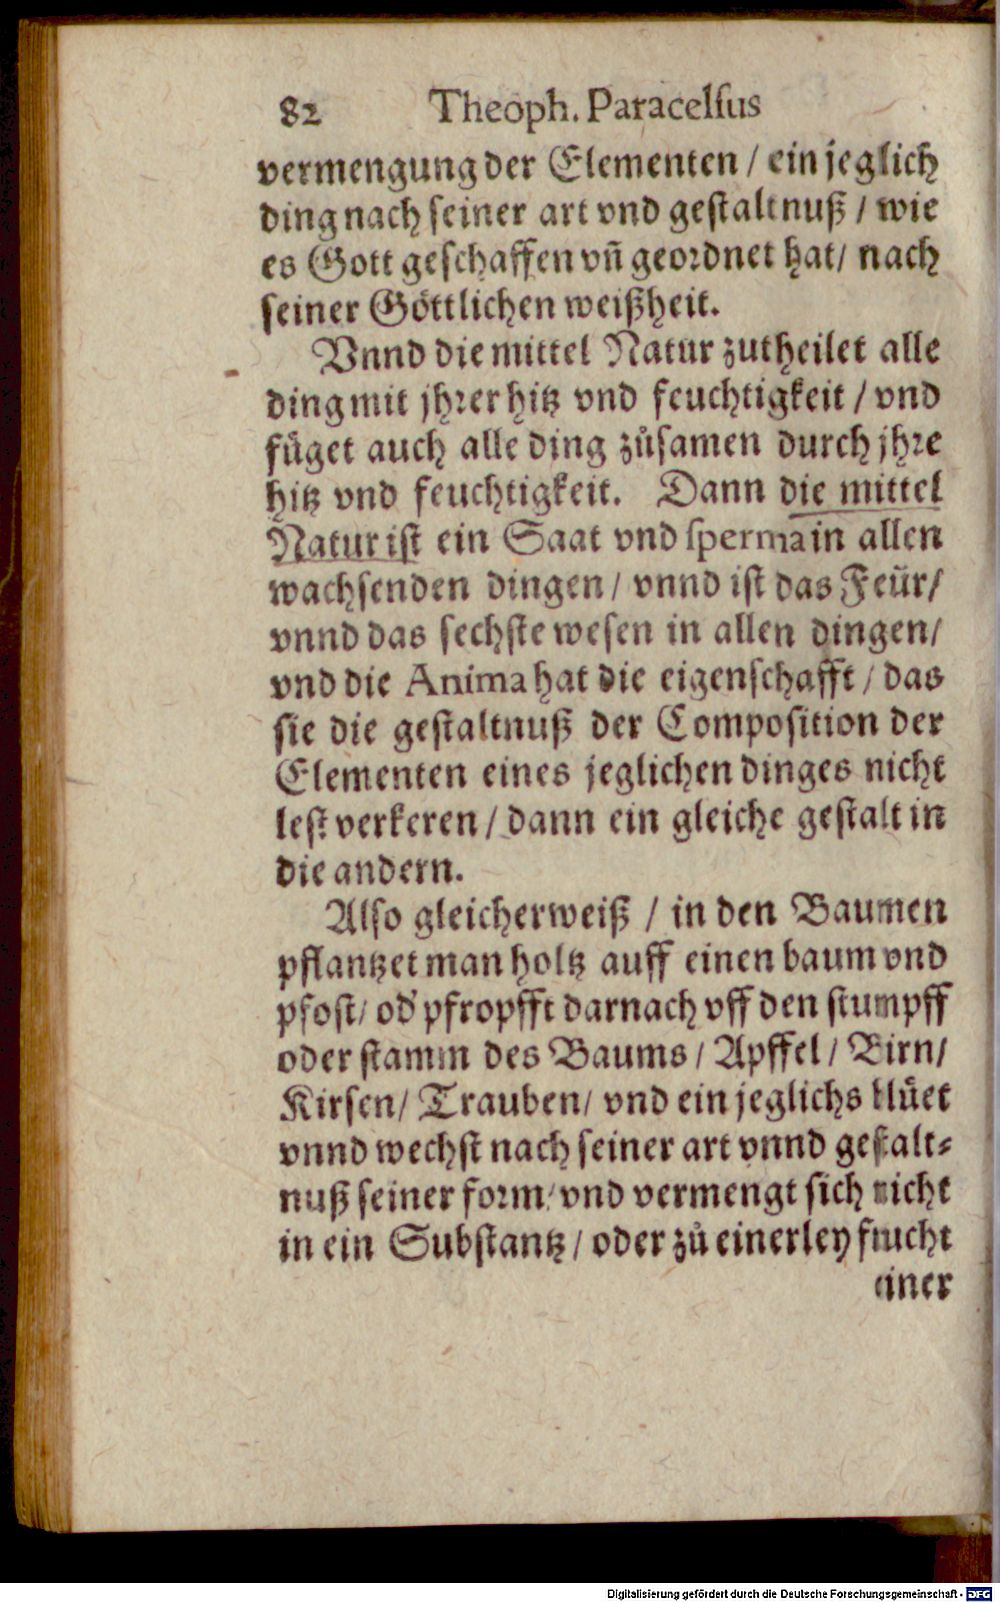 82 Theoph. Paracelſus
vermengung der Elementen / ein jeglich
ding nach ſeiner art vnd geſtaltnuß / wie
es Gott geſchaffen vn̄ geordnet hat / nach
ſeiner Göttlichen weißheit.
Vnnd die mittel Natur zutheilet alle
ding mit jhrer hitz vnd feuchtigkeit / vnd
füget auch alle ding zůſamen durch jhre
hitz vnd feuchtigkeit. Dann die mittel
Natur iſt ein Saat vnd ſperma in allen
wachſenden dingen / vnnd iſt das Feür /
vnnd das ſechſte weſen in allen dingen /
vnd die Anima hat die eigenſchafft / das
ſie die geſtaltnuß der Compoſition der
Elementen eines jeglichen dinges nicht
leſt verkeren / dann ein gleiche geſtalt in
die andern.
Alſo gleicherweiß / in den Baumen
pflantzet man holtz auff einen baum vnd
pfoſt / od' pfropfft darnach vff den ſtumpff
oder ſtamm des Baums / Apffel / Birn /
Kirſen / Trauben / vnd ein jeglichs blüet
vnnd wechſt nach ſeiner art vnnd geſtalt⸗
nuß ſeiner form / vnd vermengt ſich nicht
in ein Subſtantz / oder zů einerley frucht
einer
Digitalisierung gefördert durch die Deutsche Forschungsgemeinschaft - DFG